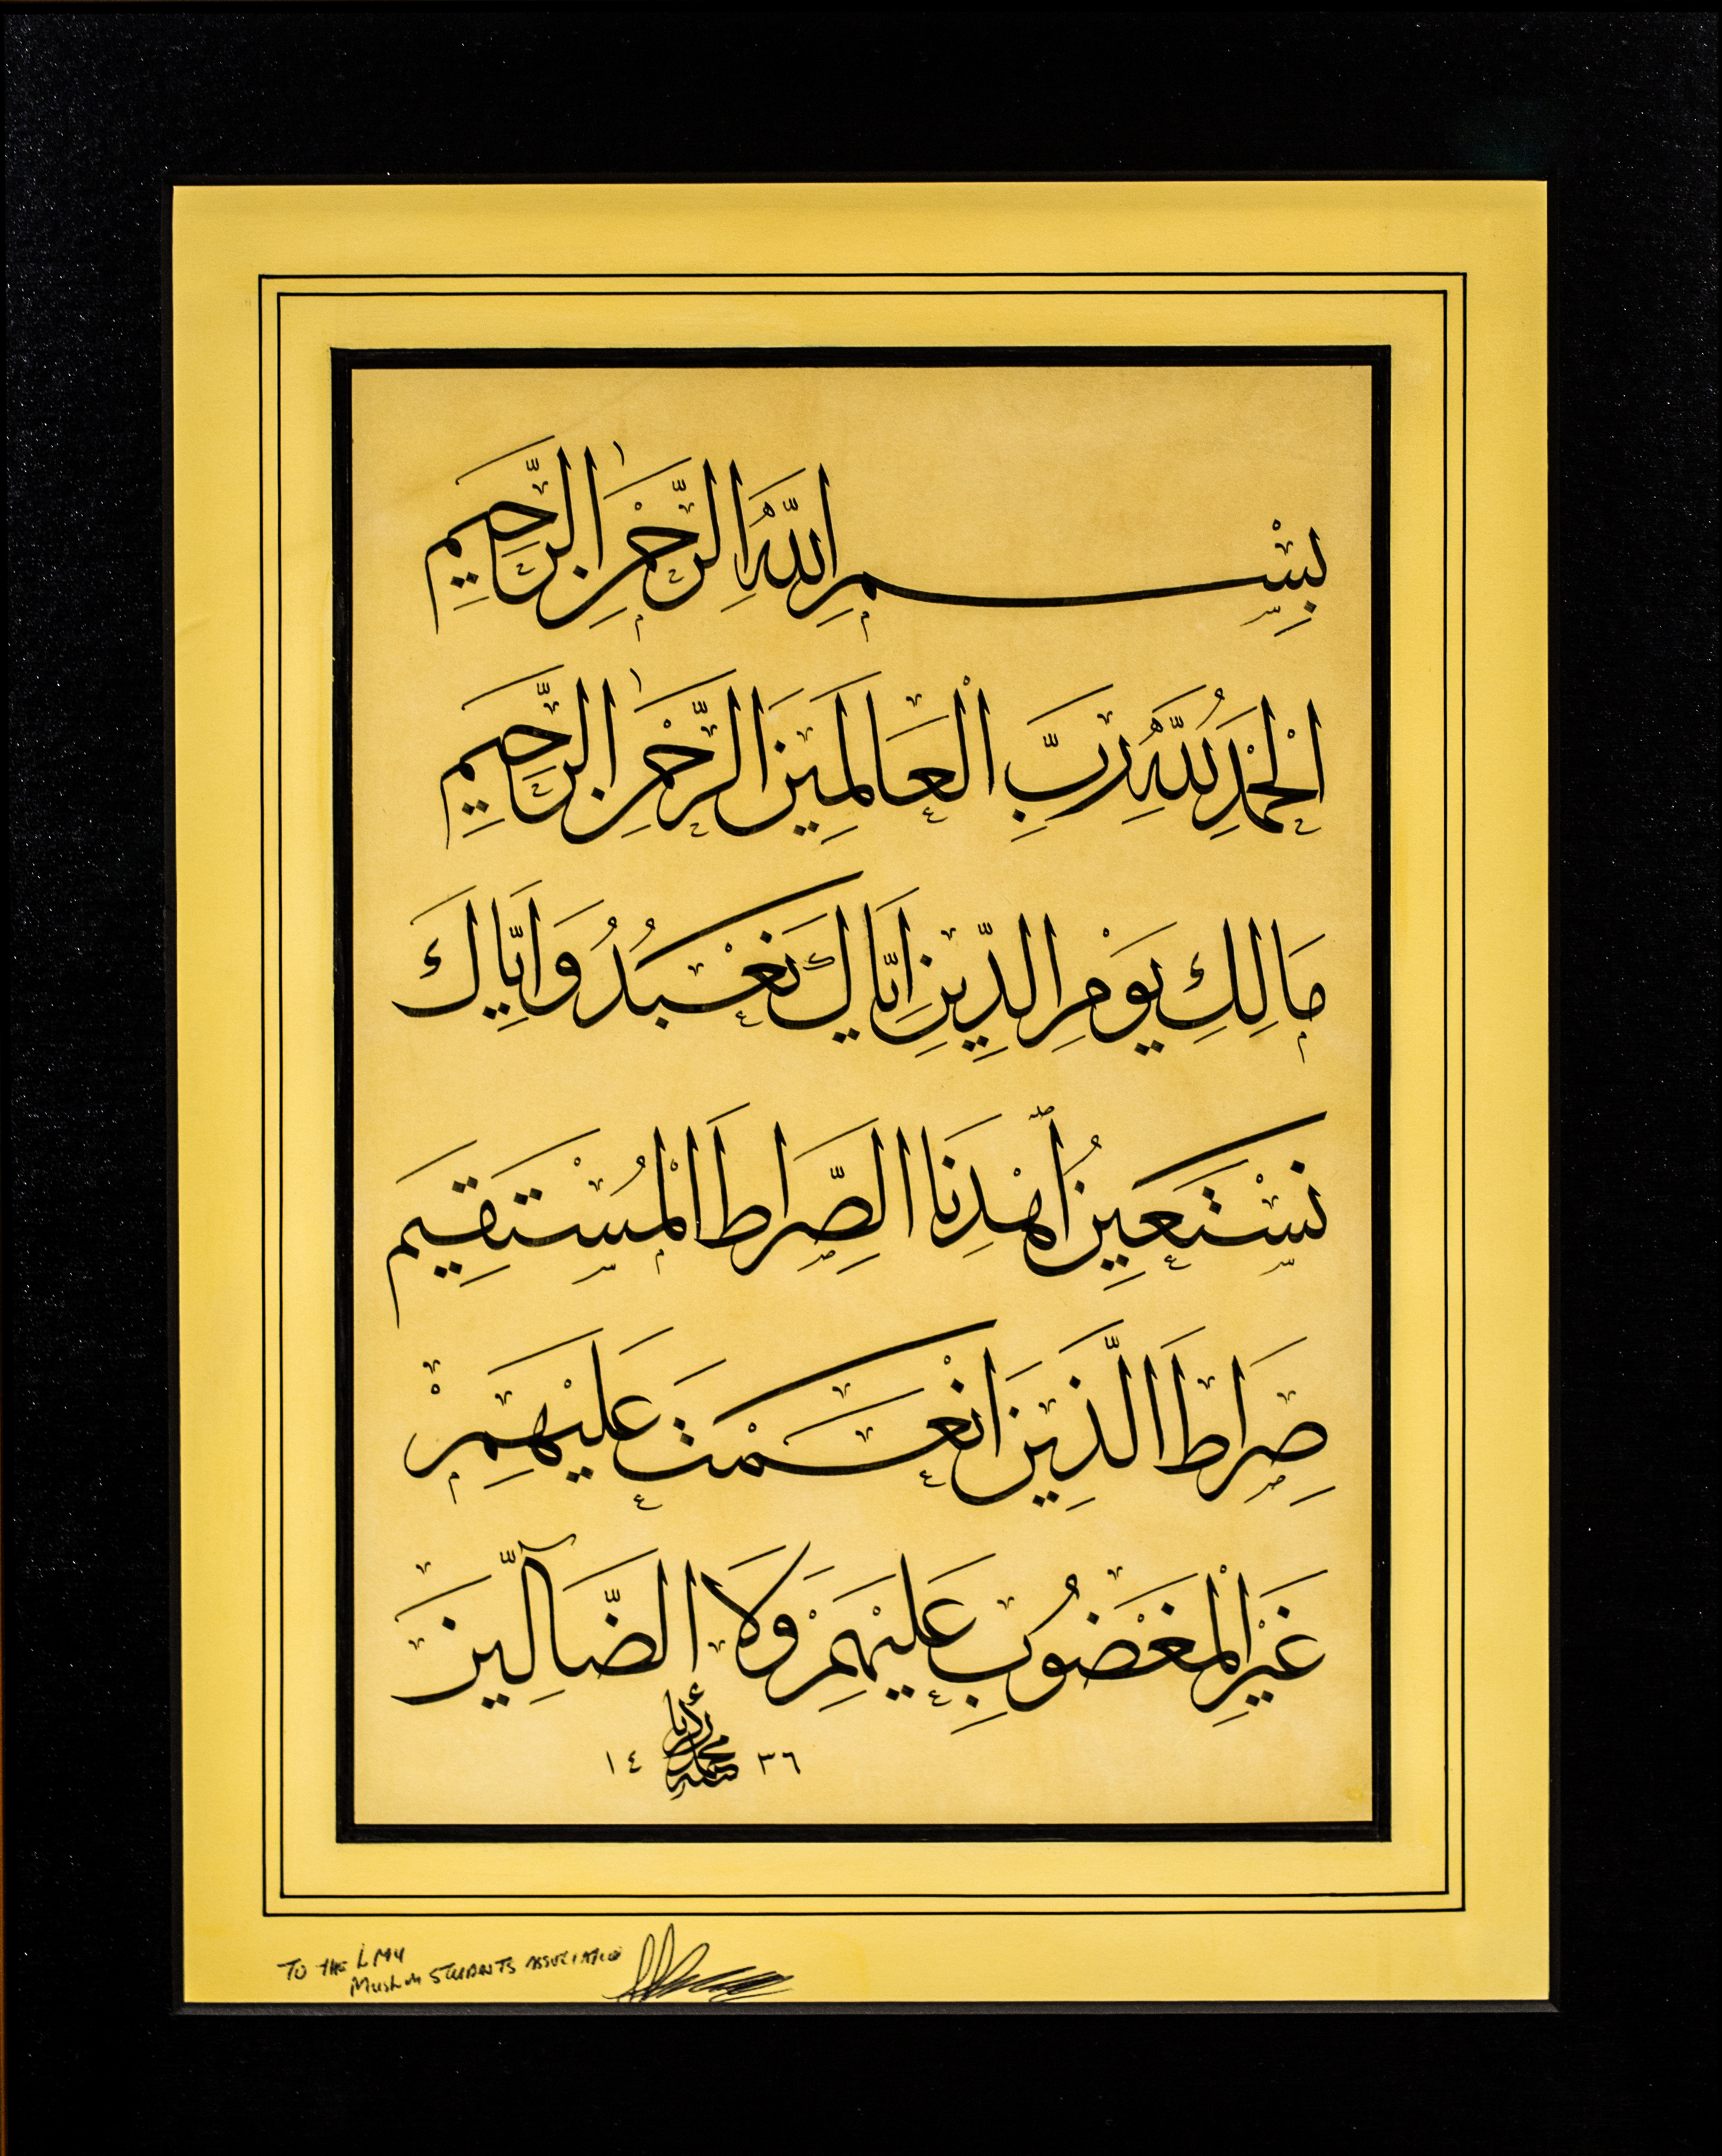 بِسْمِ اللَّهِ الرَّحْمٰنِ الرَّحِيمِ
اَلْحَمْدُ لِلَّهِ رَبِّ الْعَالَمِينَ الرَّحْمٰنِ الرَّحِيمِ
مَالِكِ يَوْمِ الدِّينِ اِيَّاكَ نَعْبُدُ وَاِيَّاكَ
نَسْتَعِينُ اهْدِنَا الصِّرَاطَ الْمُسْتَقِيمَ
صِرَاطَ الَّذِينَ اَنْعَمْتَ عَلَيْهِمْ
غَيْرِ الْمَغْضُوبِ عَلَيْهِمْ وَلَا الضَّآلِّينَ
١٤ ٣٦
TO THE LMU
MUSLIM STUDENTS ASSOCIATION